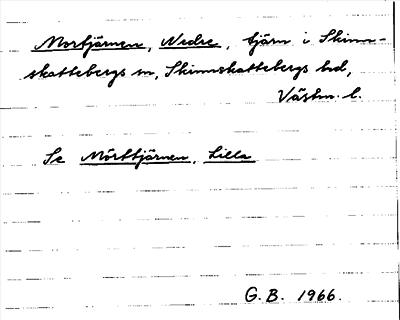 Mortjärnen, Nedre, tjärn i Skinn-
skattebergs sn, Skinnskattebergs hd,
Västm. l.
Se Mörttjärnen, Lilla
G.B. 1966.